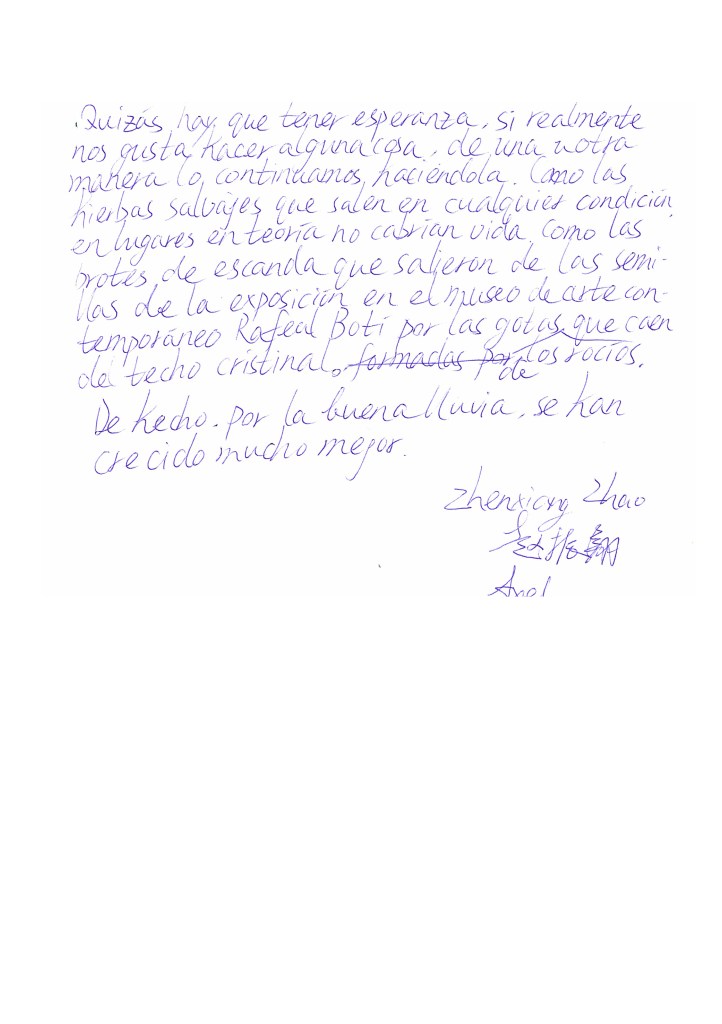 Quizás, hay que tener esperanza, si realmente
nos gusta hacer alguna cosa, de una u otra
manera lo continuamos haciéndola. Como las
hierbas salvajes que salen en cualquier condición,
en lugares en teoría no cabrían vida. Como las
brotes de escanda que salieron de las semi-
llas de la exposición en el museo de arte con-
temporáneo Rafeal Botí por las gotas que caen
de techo cristinal, formadas por de los rocíos.
De hecho, por la buena lluvia, se han
crecido mucho mejor.
Zhenxiang Zhao
赵振翔